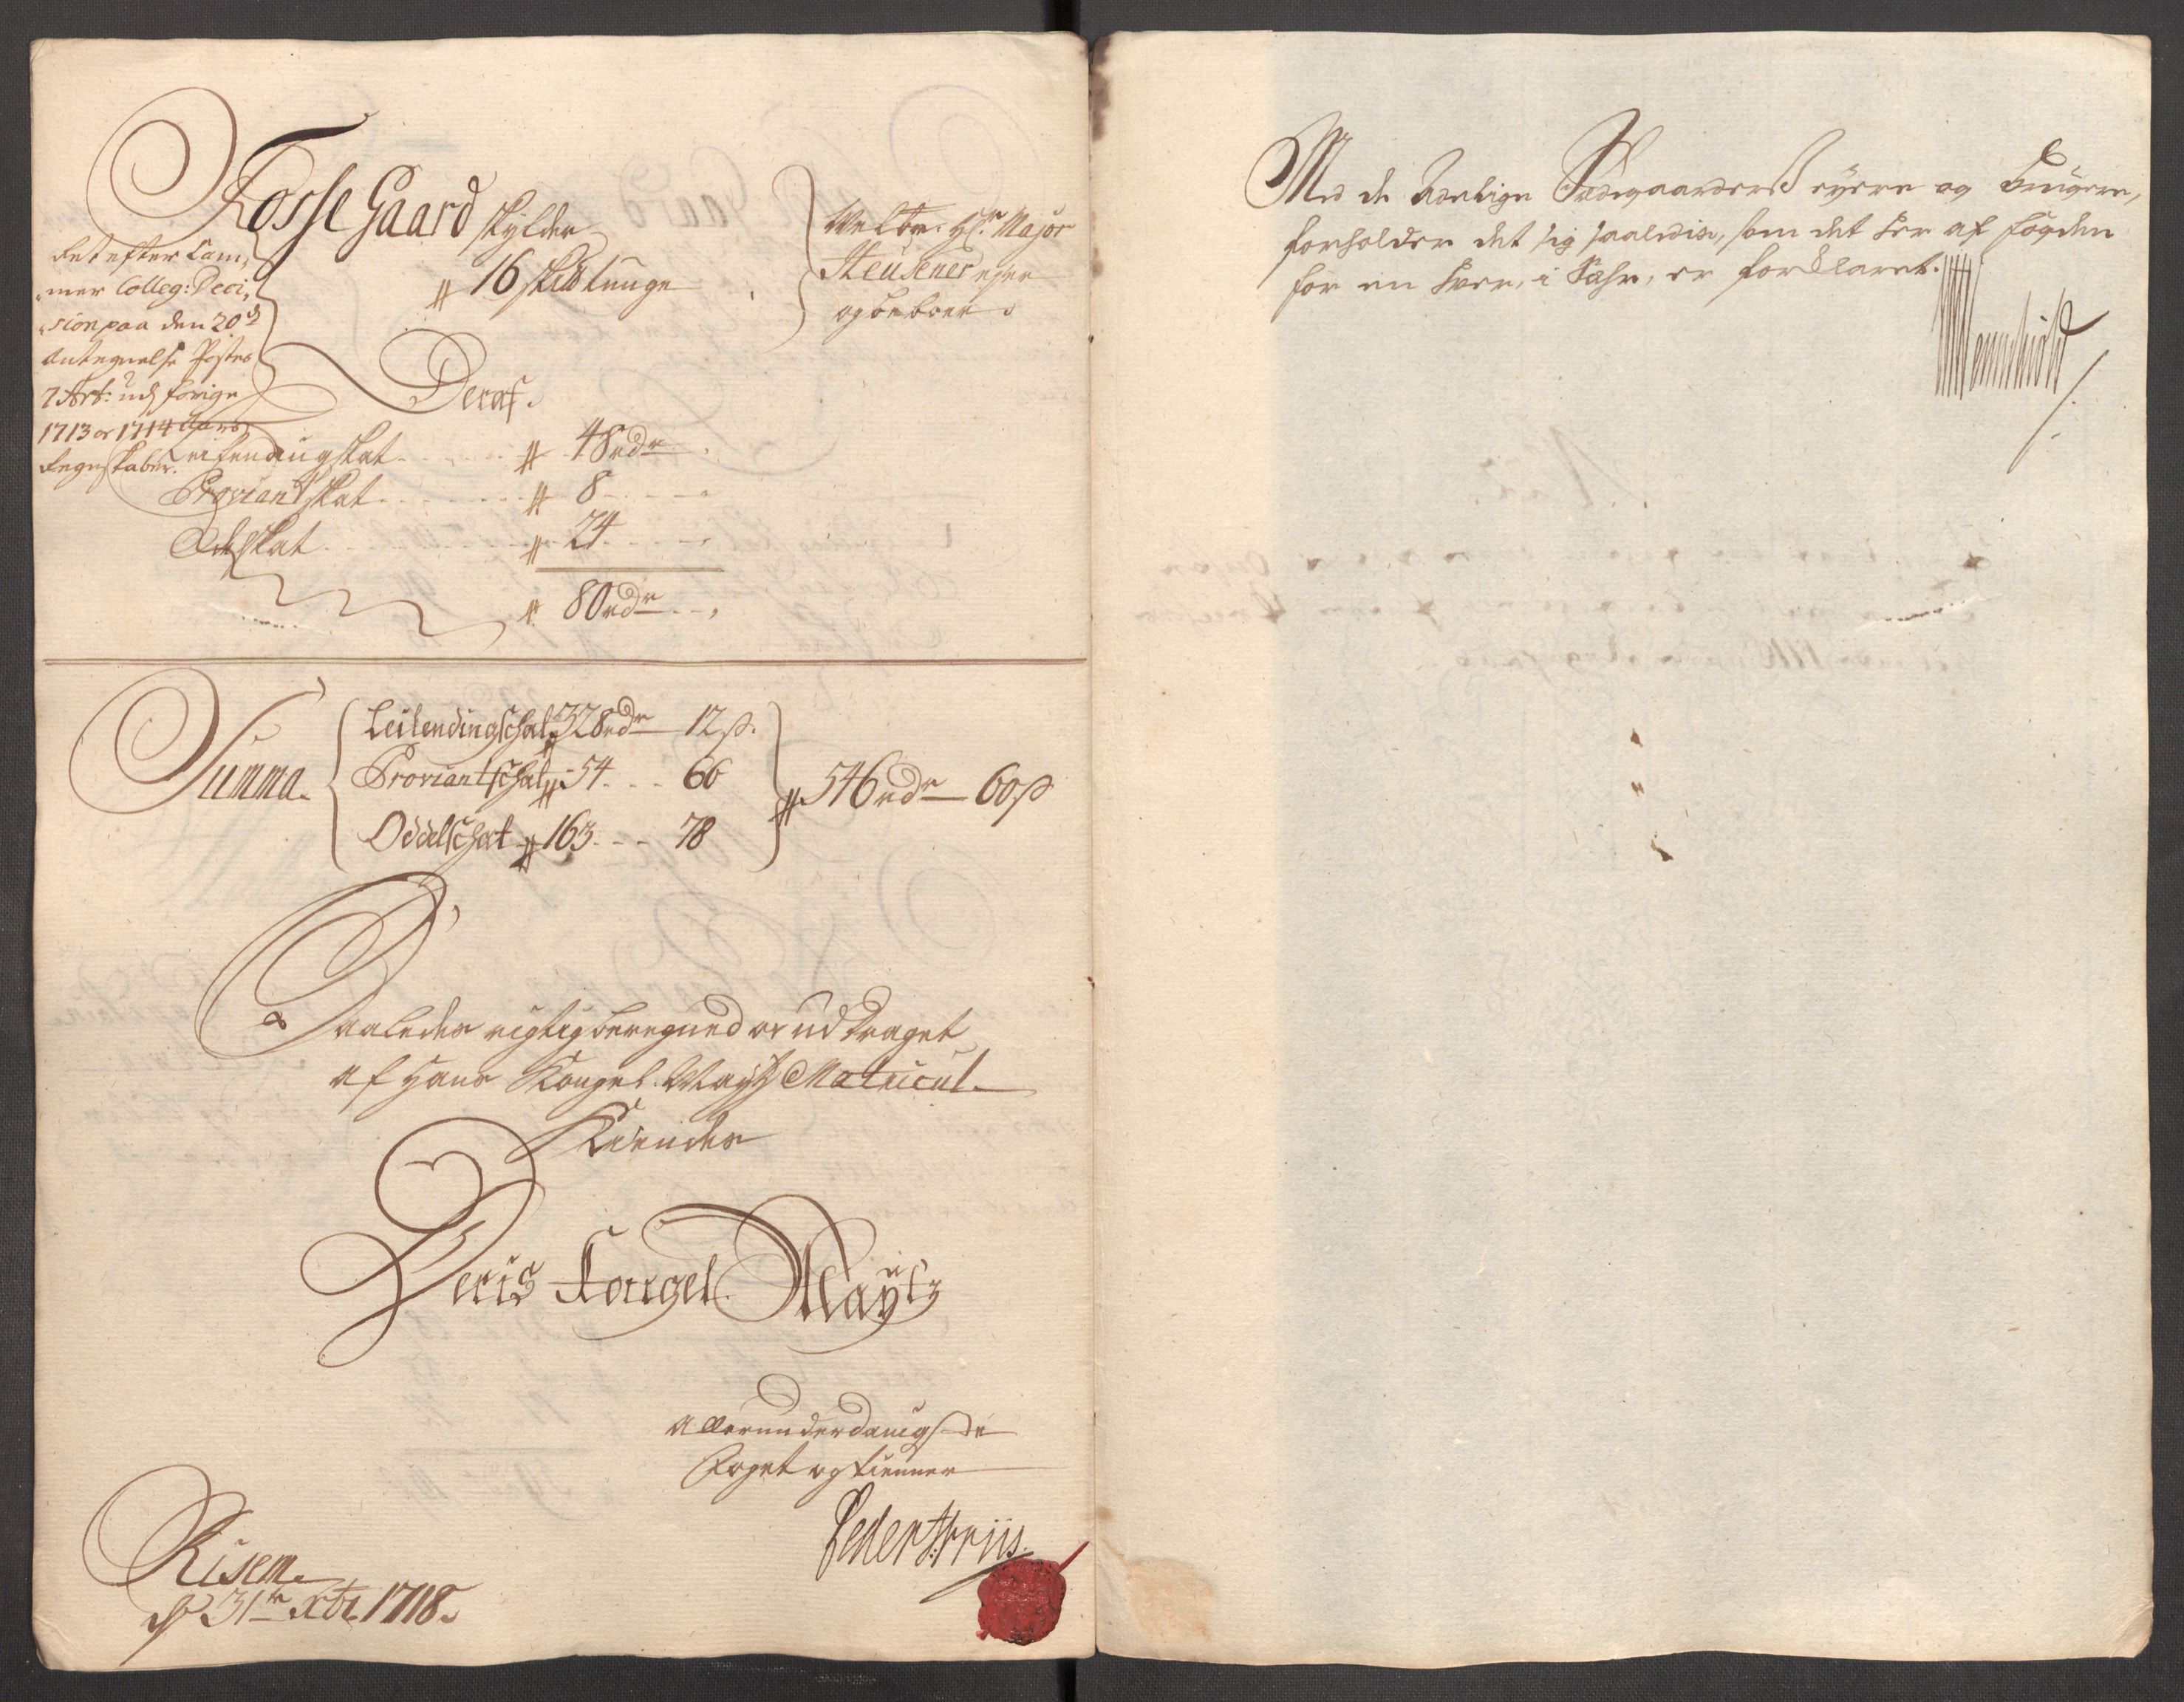 Fosse Gaard skylder
# 16 skib tunge
Welbr. Hr. Major
Steusener eyer
og beboer
det efter Cam,
mer Colleg: Deci,
sion paa den 20de
Antegnelse Postes
7 Art: udj forige
1713 og 1714 Aars
Regnskaber.
Deraf.
Leilendingskat - - - # 48 rdr - ,
Proviantskat - - - - # 8 - - - ,
Odelskat - - - - - # 24 - - - ,
# 80 rdr - - ,
Summa.
Leilendingschat # 328 rdr - 12 s.
Proviantschat # 54 - - - 66
Oddelschat # 163 - - - 78
# 546 rdr - 60 s
Saaledes rigtig beregned og uddraget
af Hans Kongel. Mayts Matricul.
Kiendes
Deris Kongel. Maytz
Allerunderdanigste
Foget og tienner
Peder Friis.
Risem.
d. 31te Xbr. 1718.
Med de Adelige Sædegaarders eyere og brugere,
forholder det sig saaledis, som det her af fogden
for en hver, i sær, er forklaret.